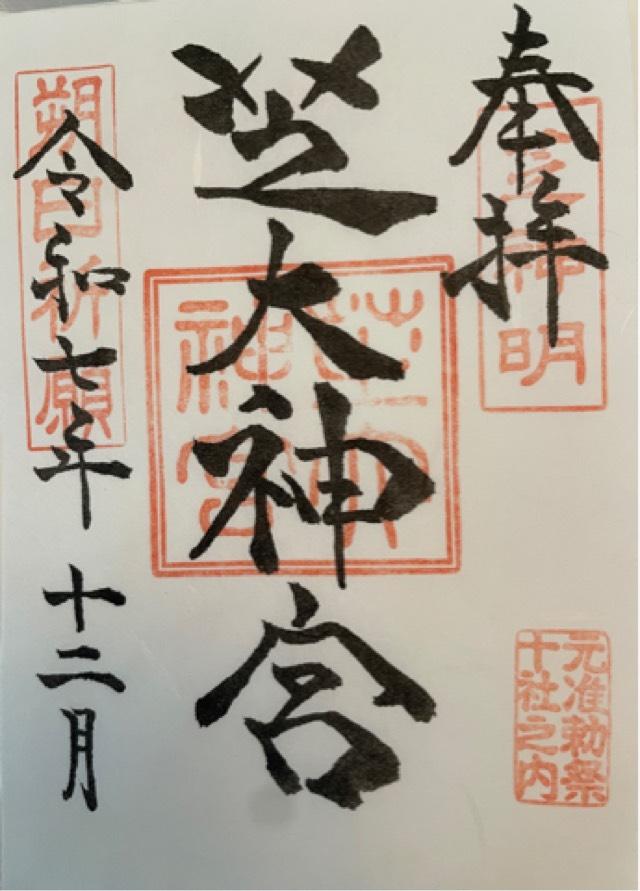 奉拝
芝神明
元准勅祭
十社之内
芝大神宮
芝大神宮
令和七年 十二月
朔日祈願